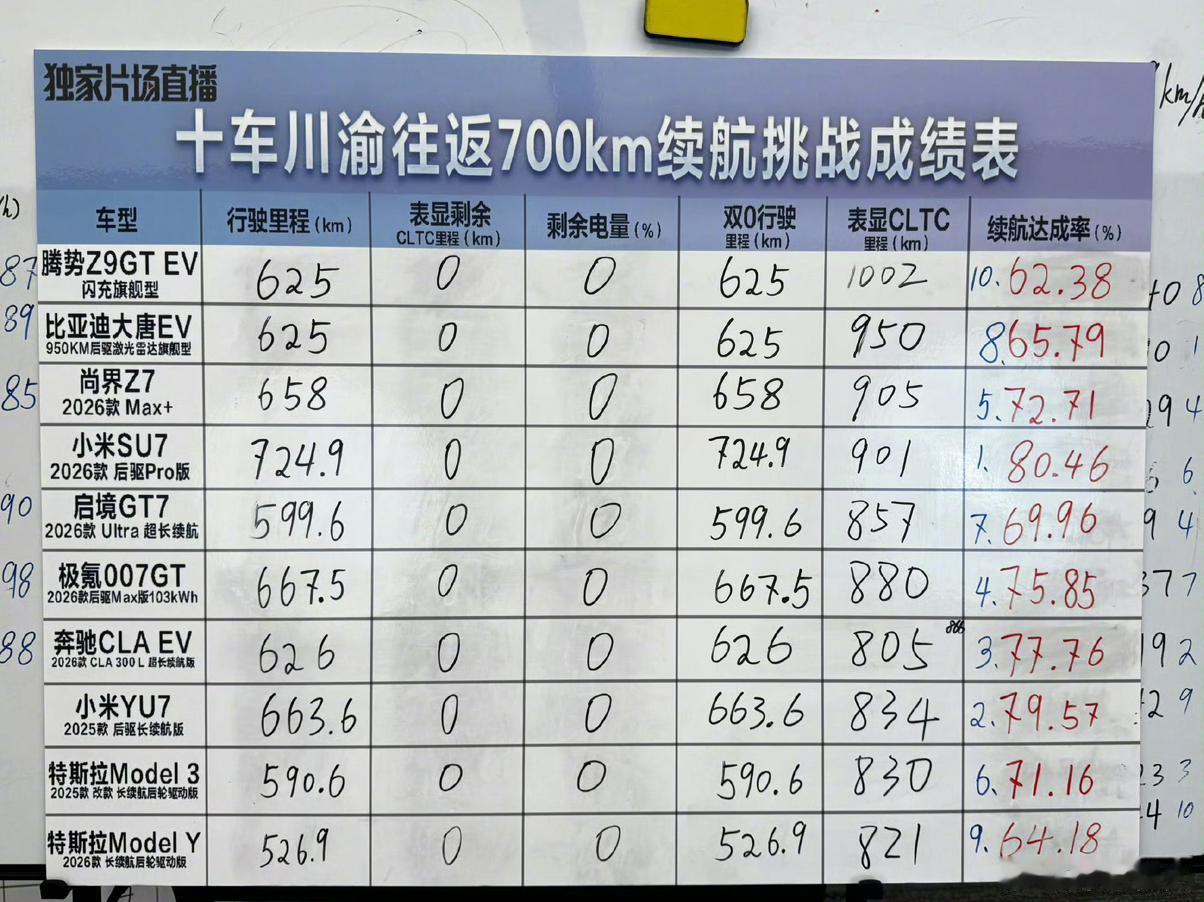 独家片场直播
十车川渝往返700km续航挑战成绩表
车型 行驶里程(km) 表显剩余 CLTC里程(km) 剩余电量(%) 双0行驶 里程(km) 表显CLTC 里程(km) 续航达成率(%)
腾势Z9GT EV 625 0 0 625 1002 10. 62.38
闪充旗舰型
比亚迪大唐EV 625 0 0 625 950 8. 65.79
950KM后驱激光雷达旗舰型
尚界Z7 658 0 0 658 905 5. 72.71
2026款 Max+
小米SU7 724.9 0 0 724.9 901 1. 80.46
2026款 后驱Pro版
启境GT7 599.6 0 0 599.6 857 7. 69.96
2026款 Ultra 超长续航
极氪007GT 667.5 0 0 667.5 880 4. 75.85
2026款后驱Max版103kWh
奔驰CLA EV 626 0 0 626 805 866 3. 77.76
2026款 CLA 300 L 超长续航版
小米YU7 663.6 0 0 663.6 834 2. 79.57
2025款 后驱长续航版
特斯拉Model 3 590.6 0 0 590.6 830 6. 71.16
2025款 改款 长续航后轮驱动版
特斯拉Model Y 526.9 0 0 526.9 821 9. 64.18
2026款 长续航后轮驱动版
87
89
85
90
98
88